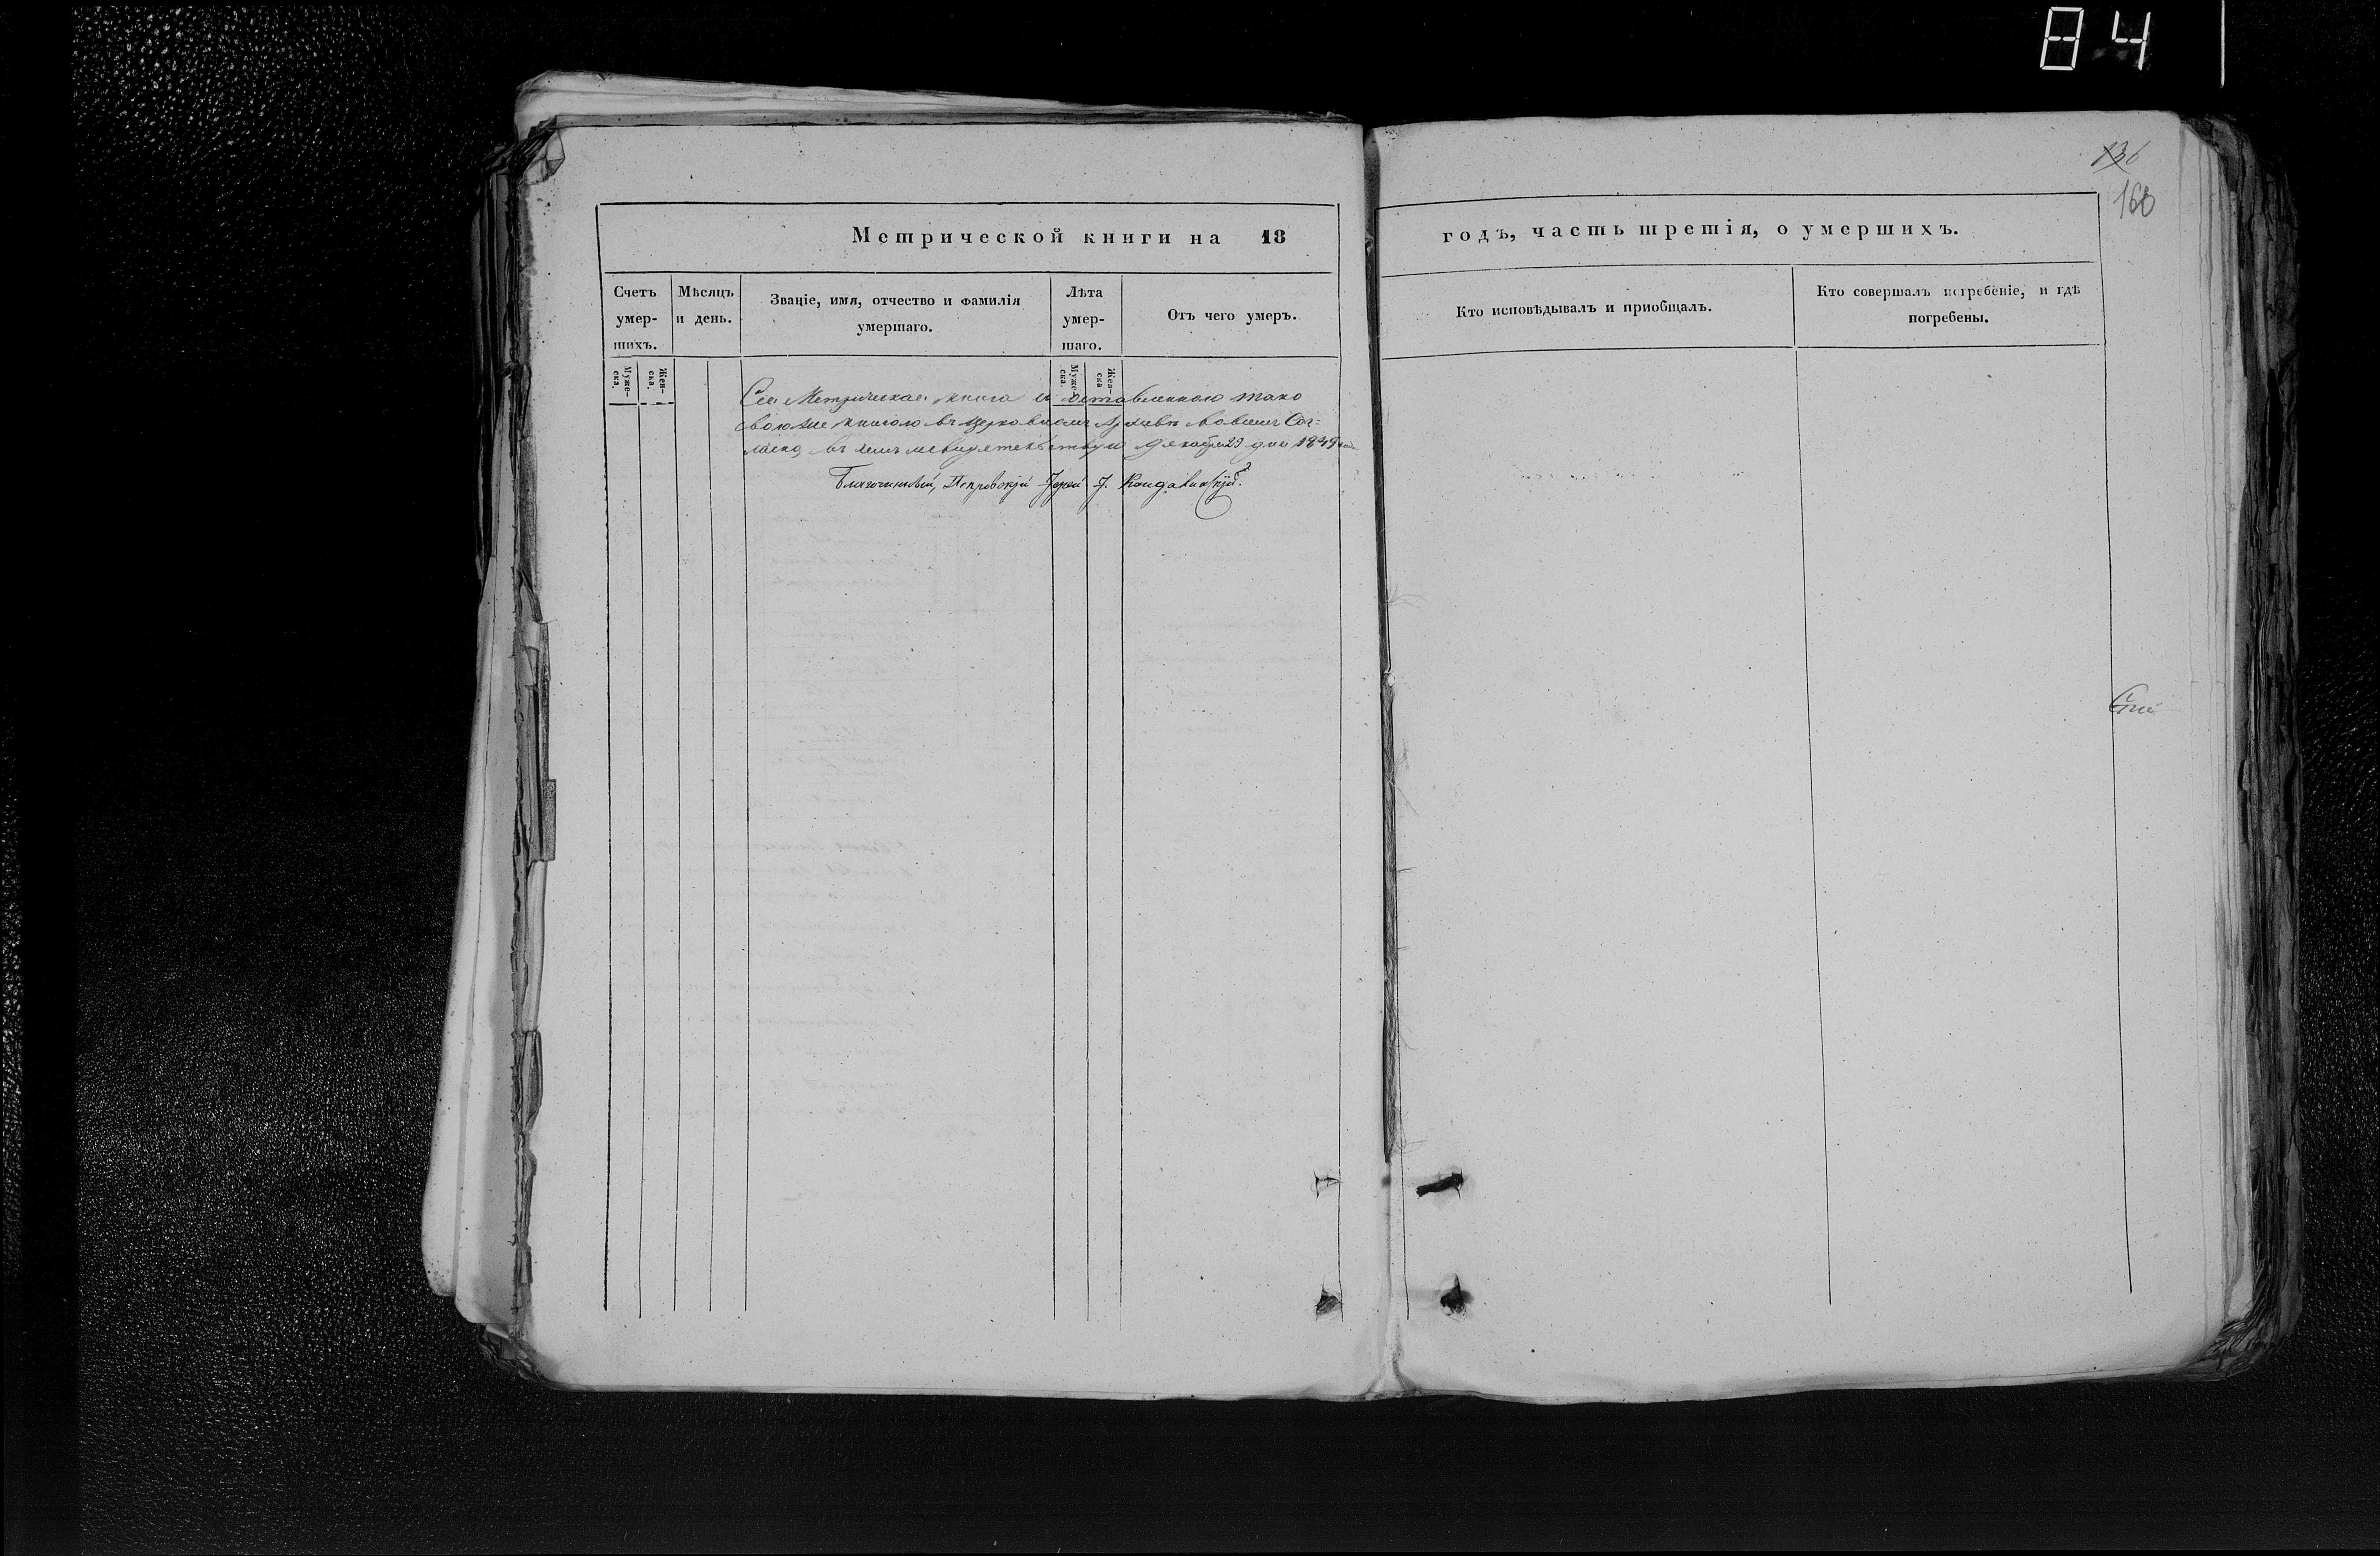 84
136
160
Метрической книги на 18 годъ, часть третія, о умершихъ.
Счетъ умер-шихъ.
Мѣсяцъ и день.
Званіе, имя, отчество и фамилія умершаго.
Лѣта умер-шаго.
Отъ чего умеръ.
Кто исповѣдывалъ и приобщалъ.
Кто совершалъ погребеніе, и гдѣ погребены.
Муже-ска.
Жен-ска.
Муже-ска.
Жен-ска
Сія Метрическая книга съ оставленною тако
вою же книгою въ церковномъ Архивѣ во всемъ Сог=
ласна, въ чемъ свидетельствую Декабря 29 дня 1849
Благочинный, Петровскій Іерей І.